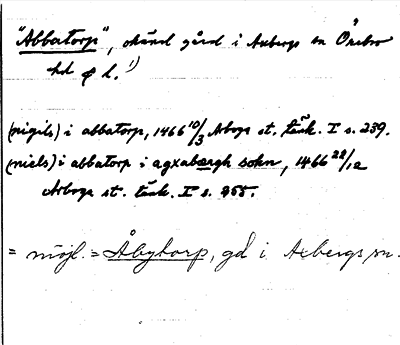 "Abbatorp", okänd gård i Axbergs sn Örebro
hd o l. 1)
(nigils) i abbatorp, 1466 10/3 Arboga st. tänk. I s. 239.
(niels) i abbatorp i agxabergh sokn, 1466 22/12
Arboga st. tänk. I s. 255.
= möjl. = Åbytorp, gd i Axbergs sn.